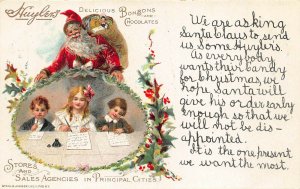 Huyler's
DELICIOUS BONBONS
AND
CHOCOLATES
We are asking
Santa Claus to send
us some Huylers.
As everybody
wants their candy
for Christmas, we
hope Santa will
give his order early
enough so that we
will not be dis-
appointed.
It is the one present
we want the most.
STORES
AND
SALES AGENCIES IN PRINCIPAL CITIES